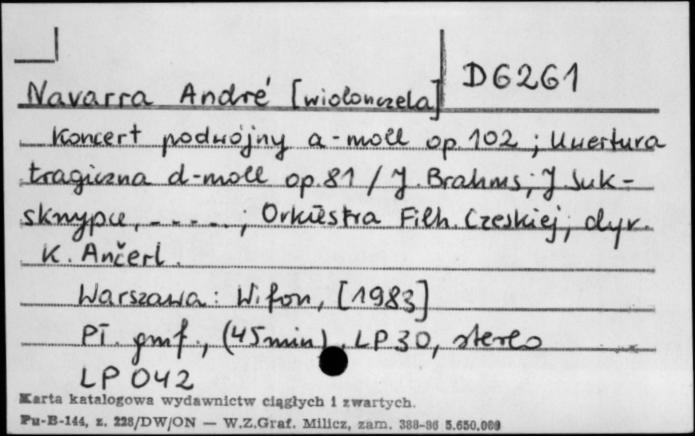 D6261
Navarra André [wiolonczela]
Koncert podwójny a-moll op. 102 ; Uwertura
tragiczna d-moll op. 81 / J. Brahms; J. Suk -
skrzypce, - - - - -; Orkiestra Filh. Czeskiej; dyr.
K. Ančerl.
Warszawa: Wifon, [1983]
Pł. gmf., (45 min). LP 30, stereo
LP 042
Karta katalogowa wydawnictw ciągłych i zwartych.
Pu-B-144, z. 228/DW/ON — W.Z.Graf. Milicz, zam. 388-86 5.650.000